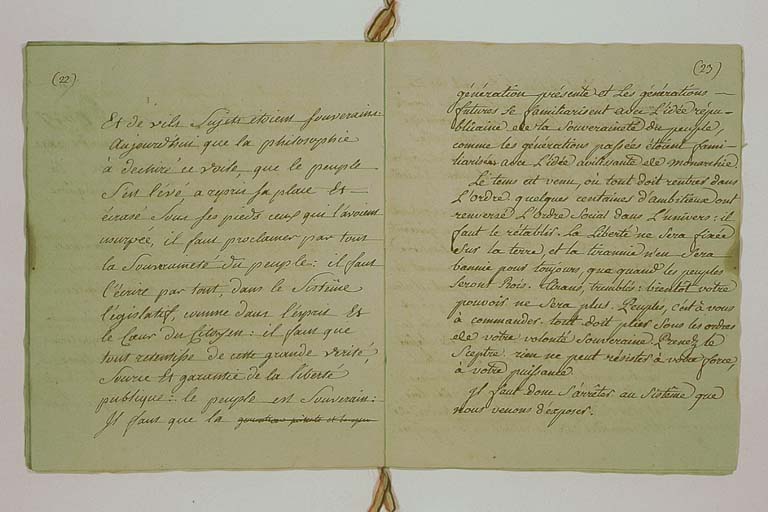 (22)
Et de vils Sujets étoient Souverains.
Aujourd'hui que la philosophie
a dechiré ce voile, que le peuple
S'est levé, a repris sa place Et
écrasé Sous ses pieds ceux qui l'avoient
usurpée, il faut proclamer par tout
la Souveraineté du peuple: il faut
l'écrire par tout, dans le Sistême
législatif, comme dans l'esprit Et
le Cœur du Citoyen: il faut que
tout retentisse de cette grande vérité,
Source Et garantie de la liberté
publique: le peuple est Souverain:
Il faut que la
(23)
génération présente et Les générations
futures Se familiarisent avec L'idée répu-
blicaine de la Souveraineté du peuple,
comme les générations passées étoient fami-
liarisées avec L'idée avilissante de monarchie.
Le tems est venu, où tout doit rentrer dans
L'ordre. quelques centaines d'ambitieux ont
renversé L'ordre Social dans L'univers: il
faut le rétablir. La Liberté ne Sera fixée
Sur la terre, et la tirannie n'en Sera
bannie pour toujours, que quand les peuples
Seront Rois. Tirans, tremblés: bientôt votre
pouvoir ne Sera plus. Peuples, c'est à vous
à commander. tout doit plier Sous les ordres
de votre volonté Souveraine. Prenez le
Sceptre. rien ne peut résister à votre force,
à votre puissance.
Il faut donc S'arrêter au Sistême que
nous venons d'exposer.